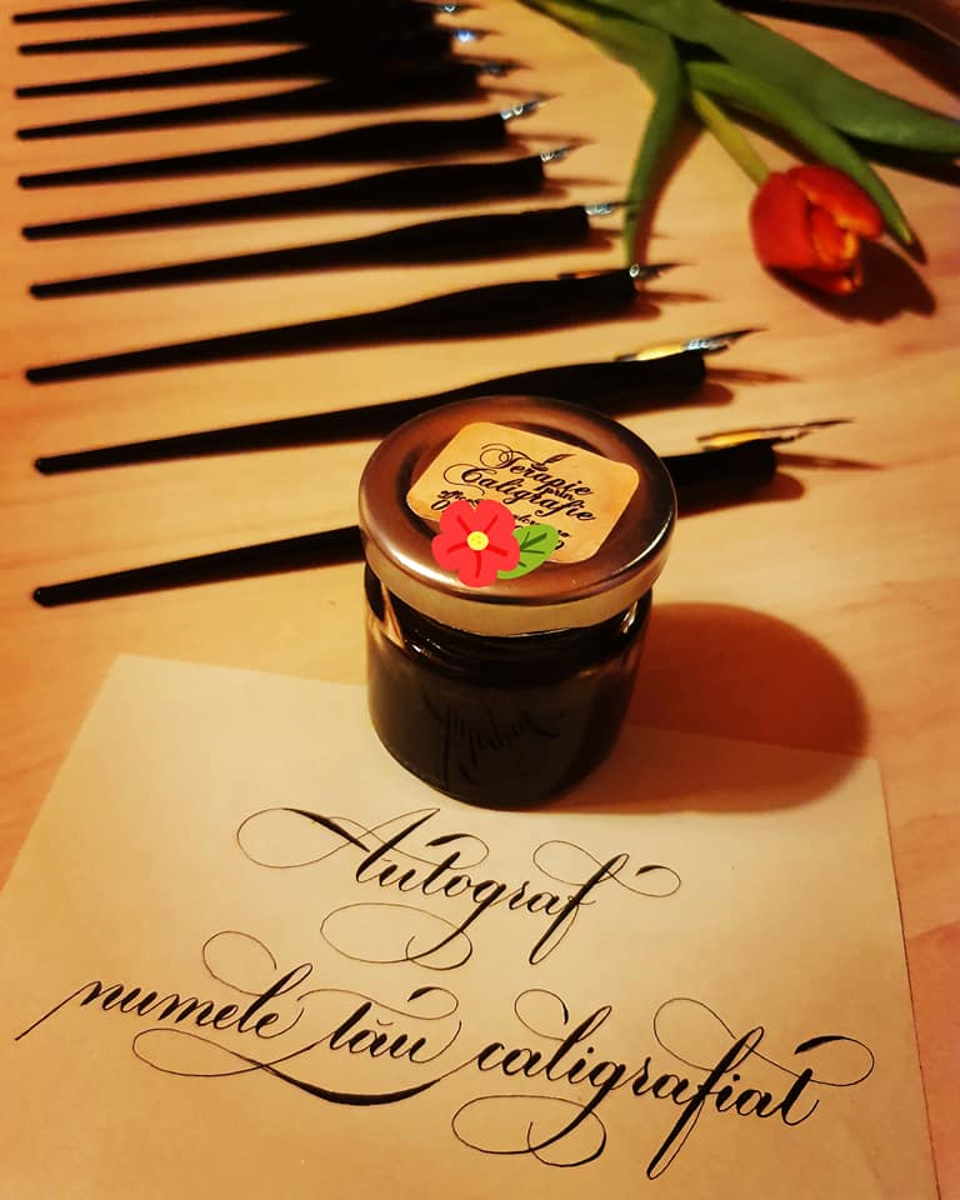 Terapie
prin
Caligrafie
Autograf
numele tău caligrafiat